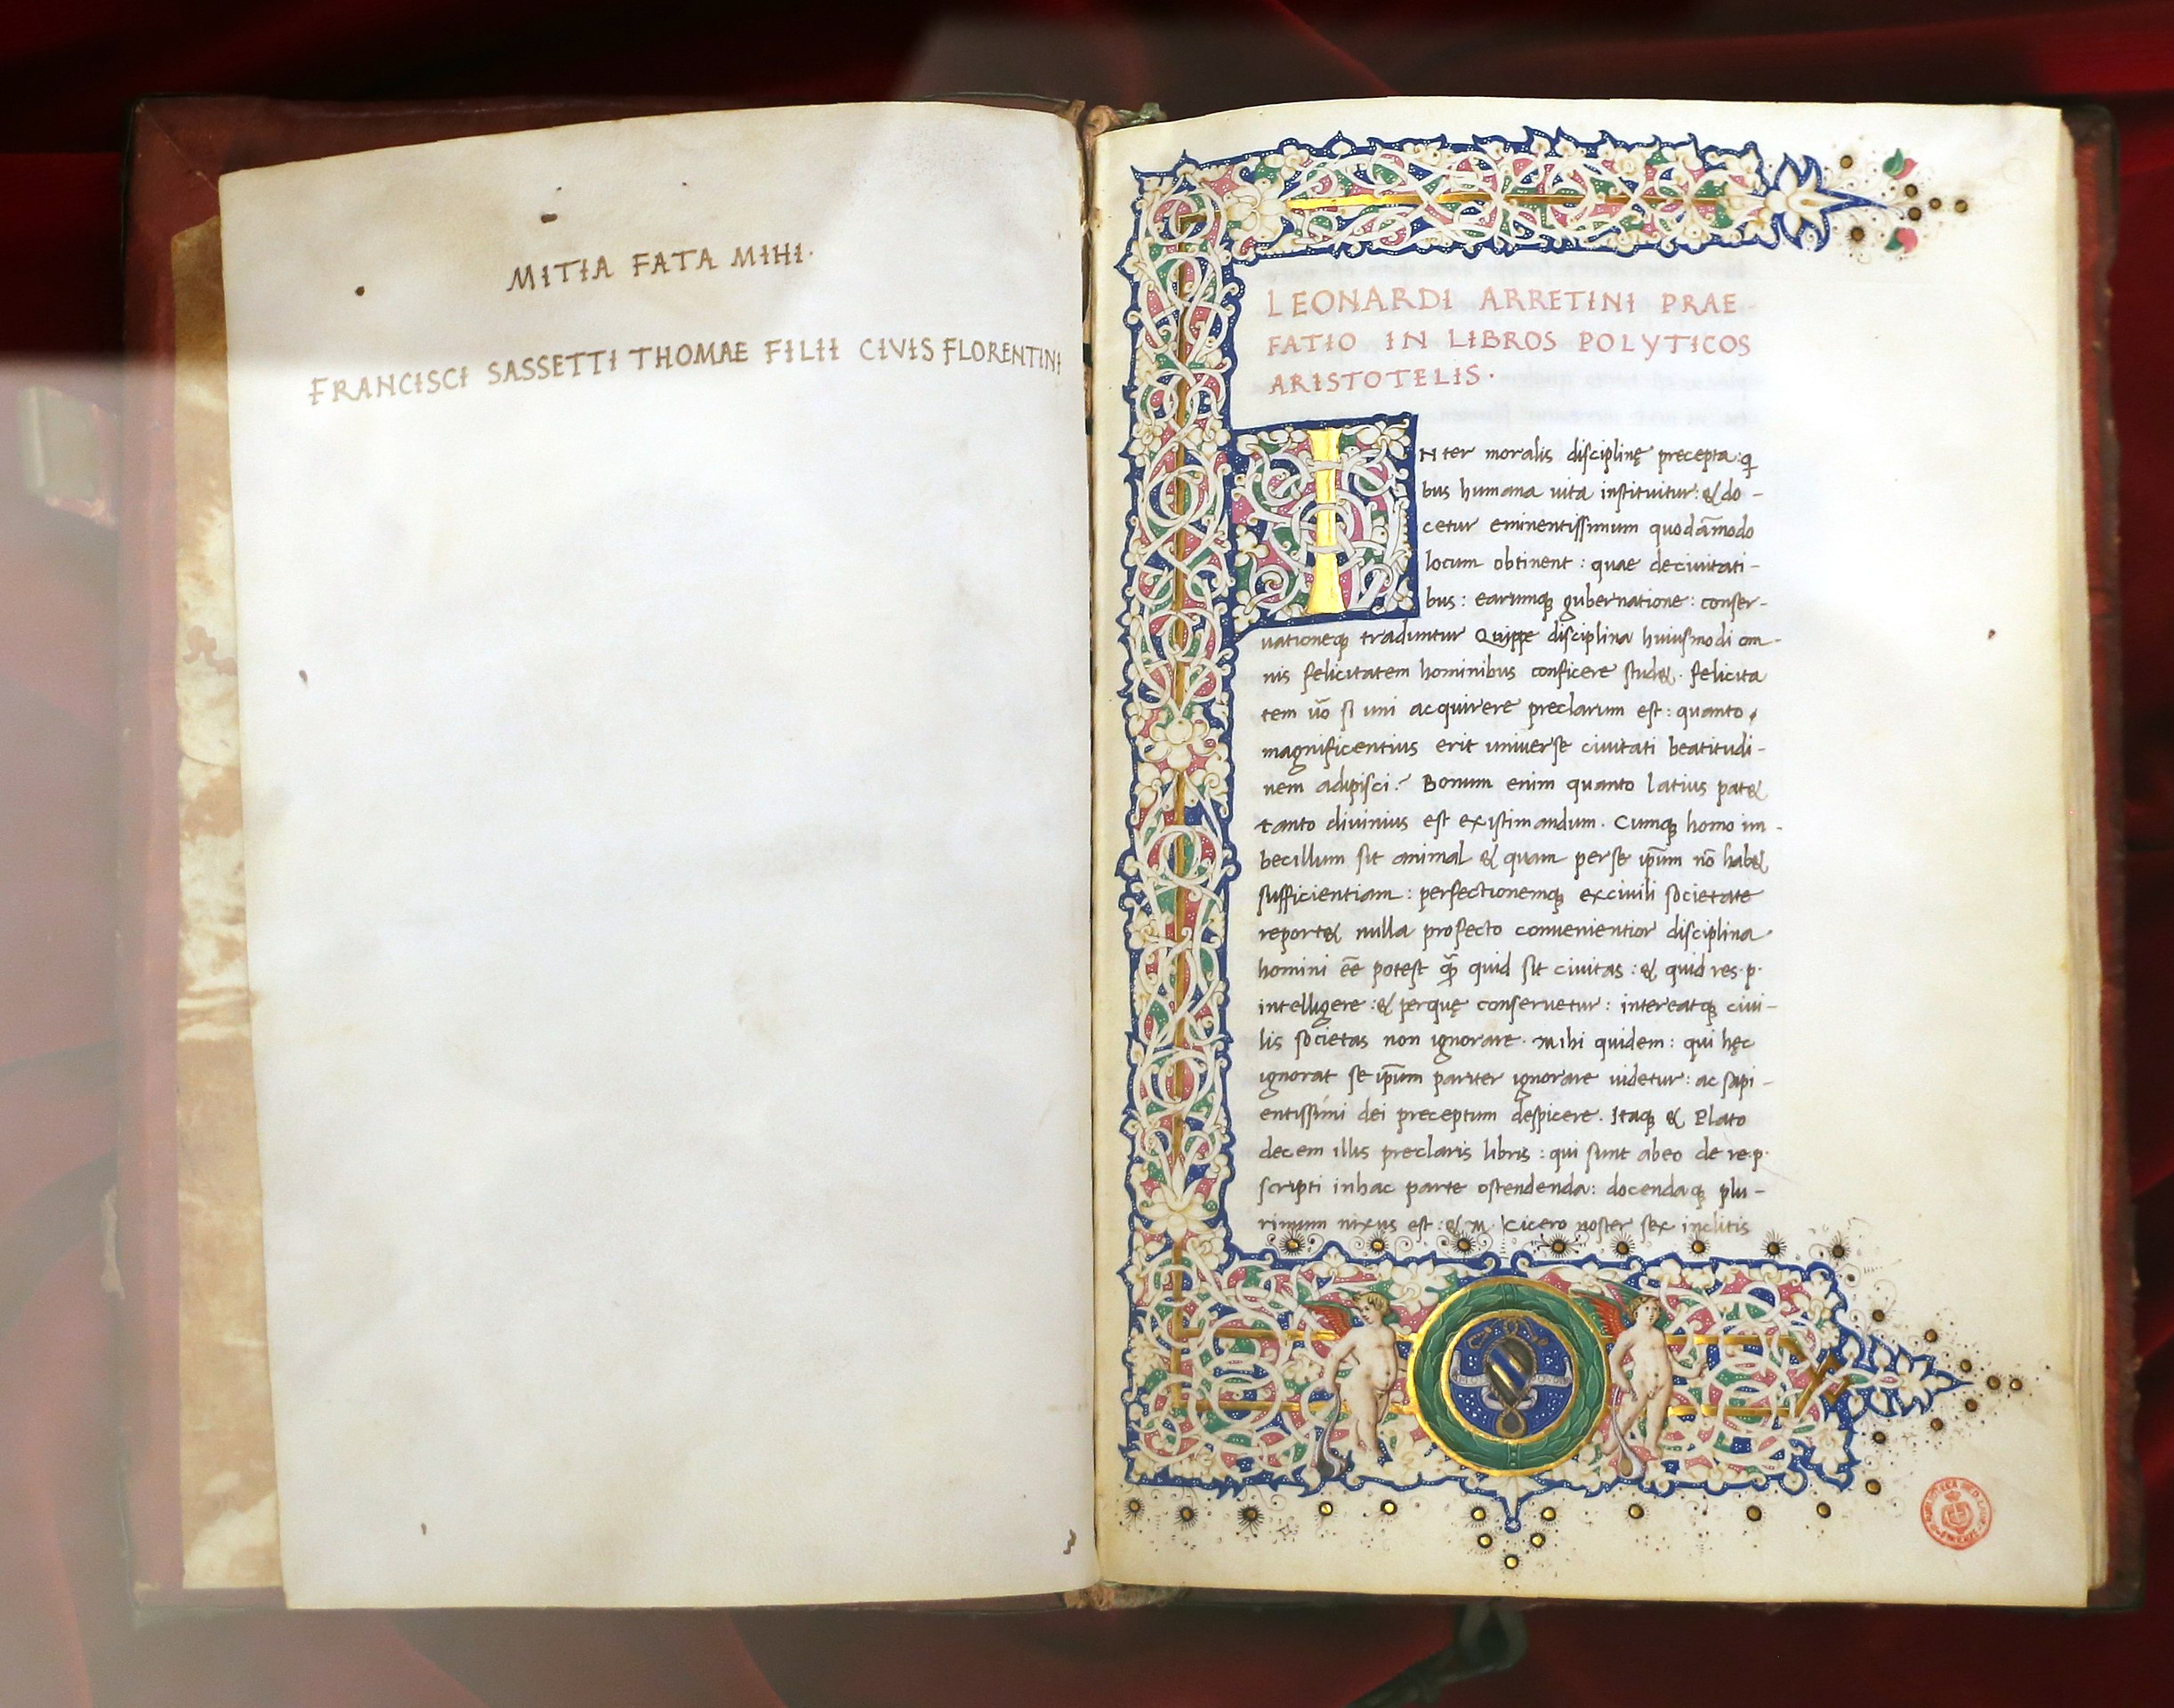 MITIA FATA MIHI·
FRANCISCI SASSETTI THOMAE FILII CIVIS FLORENTINI
LEONARDI ARRETINI PRAE-
FATIO IN LIBROS POLYTICOS
ARISTOTELIS·
INter moralis disciplinę precepta: q
bus humana uita instituitur: & do-
cetur eminentissimum quodāmodo
locum obtinent: quae deciuitati-
bus: earumq; gubernatione: conser-
uationeq; traduntur Quippe disciplina huiusmodi om-
nis felicitatem hominibus conficere stud&. felicita
tem ūo si uni acquirere preclarum est: quanto
magnificentius erit uniuerse ciuitati beatitudi-
nem adipisci? Bonum enim quanto latius pat&
tanto diuinius est existimandum. Cumq; homo im-
becillum sit animal & quam perse ip̄um nō hab&
sufficientiam: perfectionemq; exciuili societate
report& nulla profecto conuenientior disciplina
homini eē potest q̄ quid sit ciuitas: & quid res·p·
intelligere: & perquę conseruetur: intereatq; ciui-
lis societas non ignorare. Mihi quidem: qui hęc
ignorat se ip̄um pariter ignorare uidetur: ac sapi-
entissimi dei preceptum despicere. Itaq; & Plato
decem illis preclaris libris: qui sunt abeo de re·p·
scripti inhac parte ostendenda: docendaq; plu-
rimum nixus est: & M. Cicero noster sex inclitis